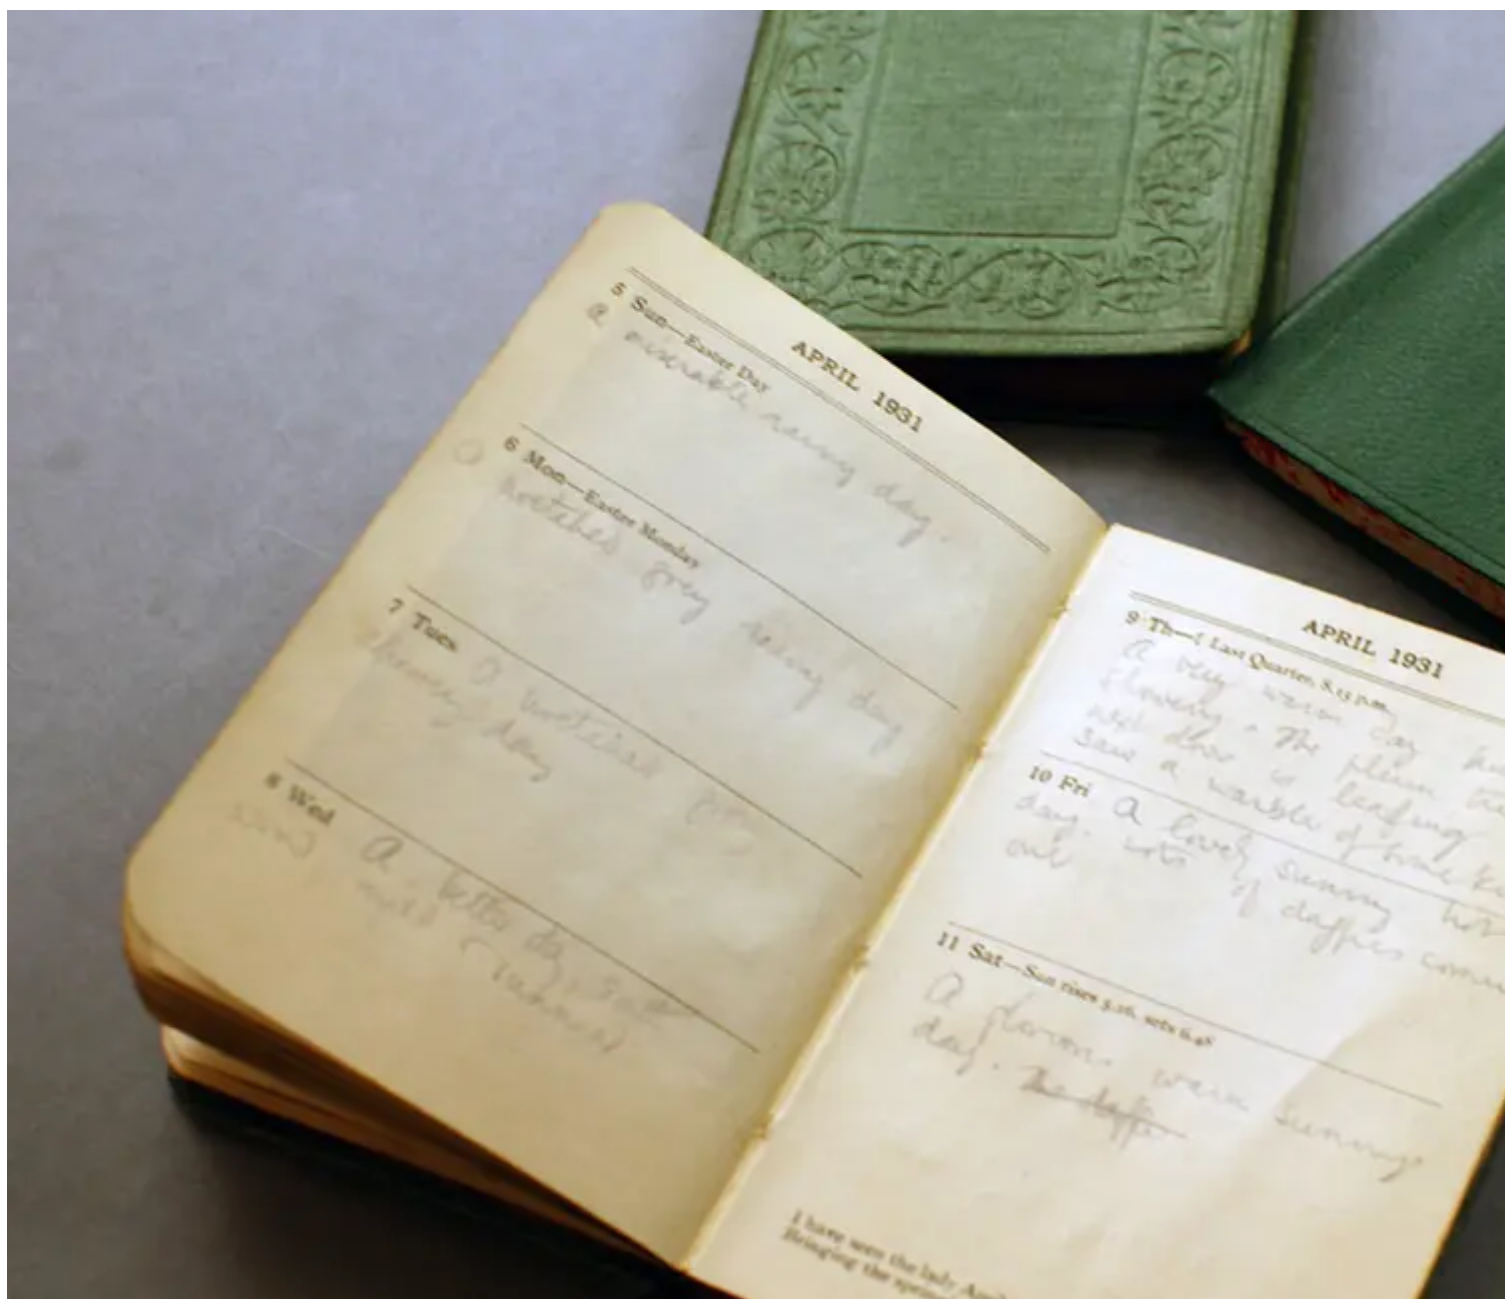 APRIL 1931
5 Sun—Easter Day
a miserable rainy day.
6 Mon—Easter Monday
A
wretched grey rainy day
7 Tues A wretched grey
day
8 Wed A better day,
sunny
APRIL 1931
9 Th—☾ Last Quarter, 8.15 p.m.
A very warm day
flowering. The plum tree
next door is leafing
saw a warbler of some
10 Fri A lovely sunny hot
day. Lots of daffies coming
out
11 Sat—Sun rises 5.16, sets 6.48
A glorious warm sunny
day. The daffs
I have seen the lady April
Bringing the spring